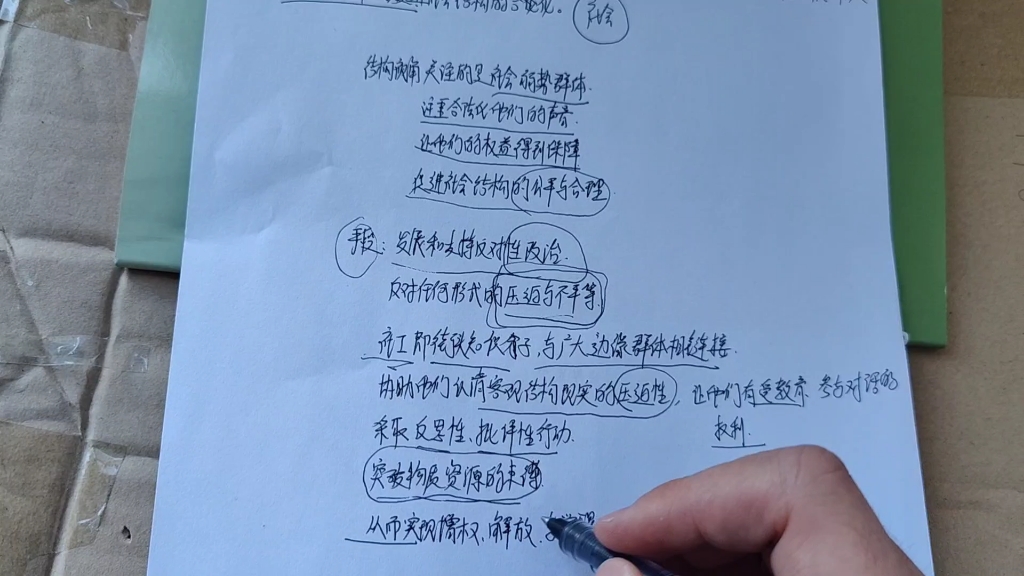 社会
结构视角关注的是社会弱势群体.
注重合法化他们的声音.
让他们的权益得到保障
促进社会结构的公平与合理
手段: 发展和支持反对性政治.
反对任何形式的压迫与不平等.
社工即传统知识分子, 与广大边缘群体相连接.
协助他们认清客观结构现实的压迫性, 让他们有受教育、参与对话的
权利.
采取反思性、批评性行动.
突破物质资源的束缚
从而实现增权、解放、